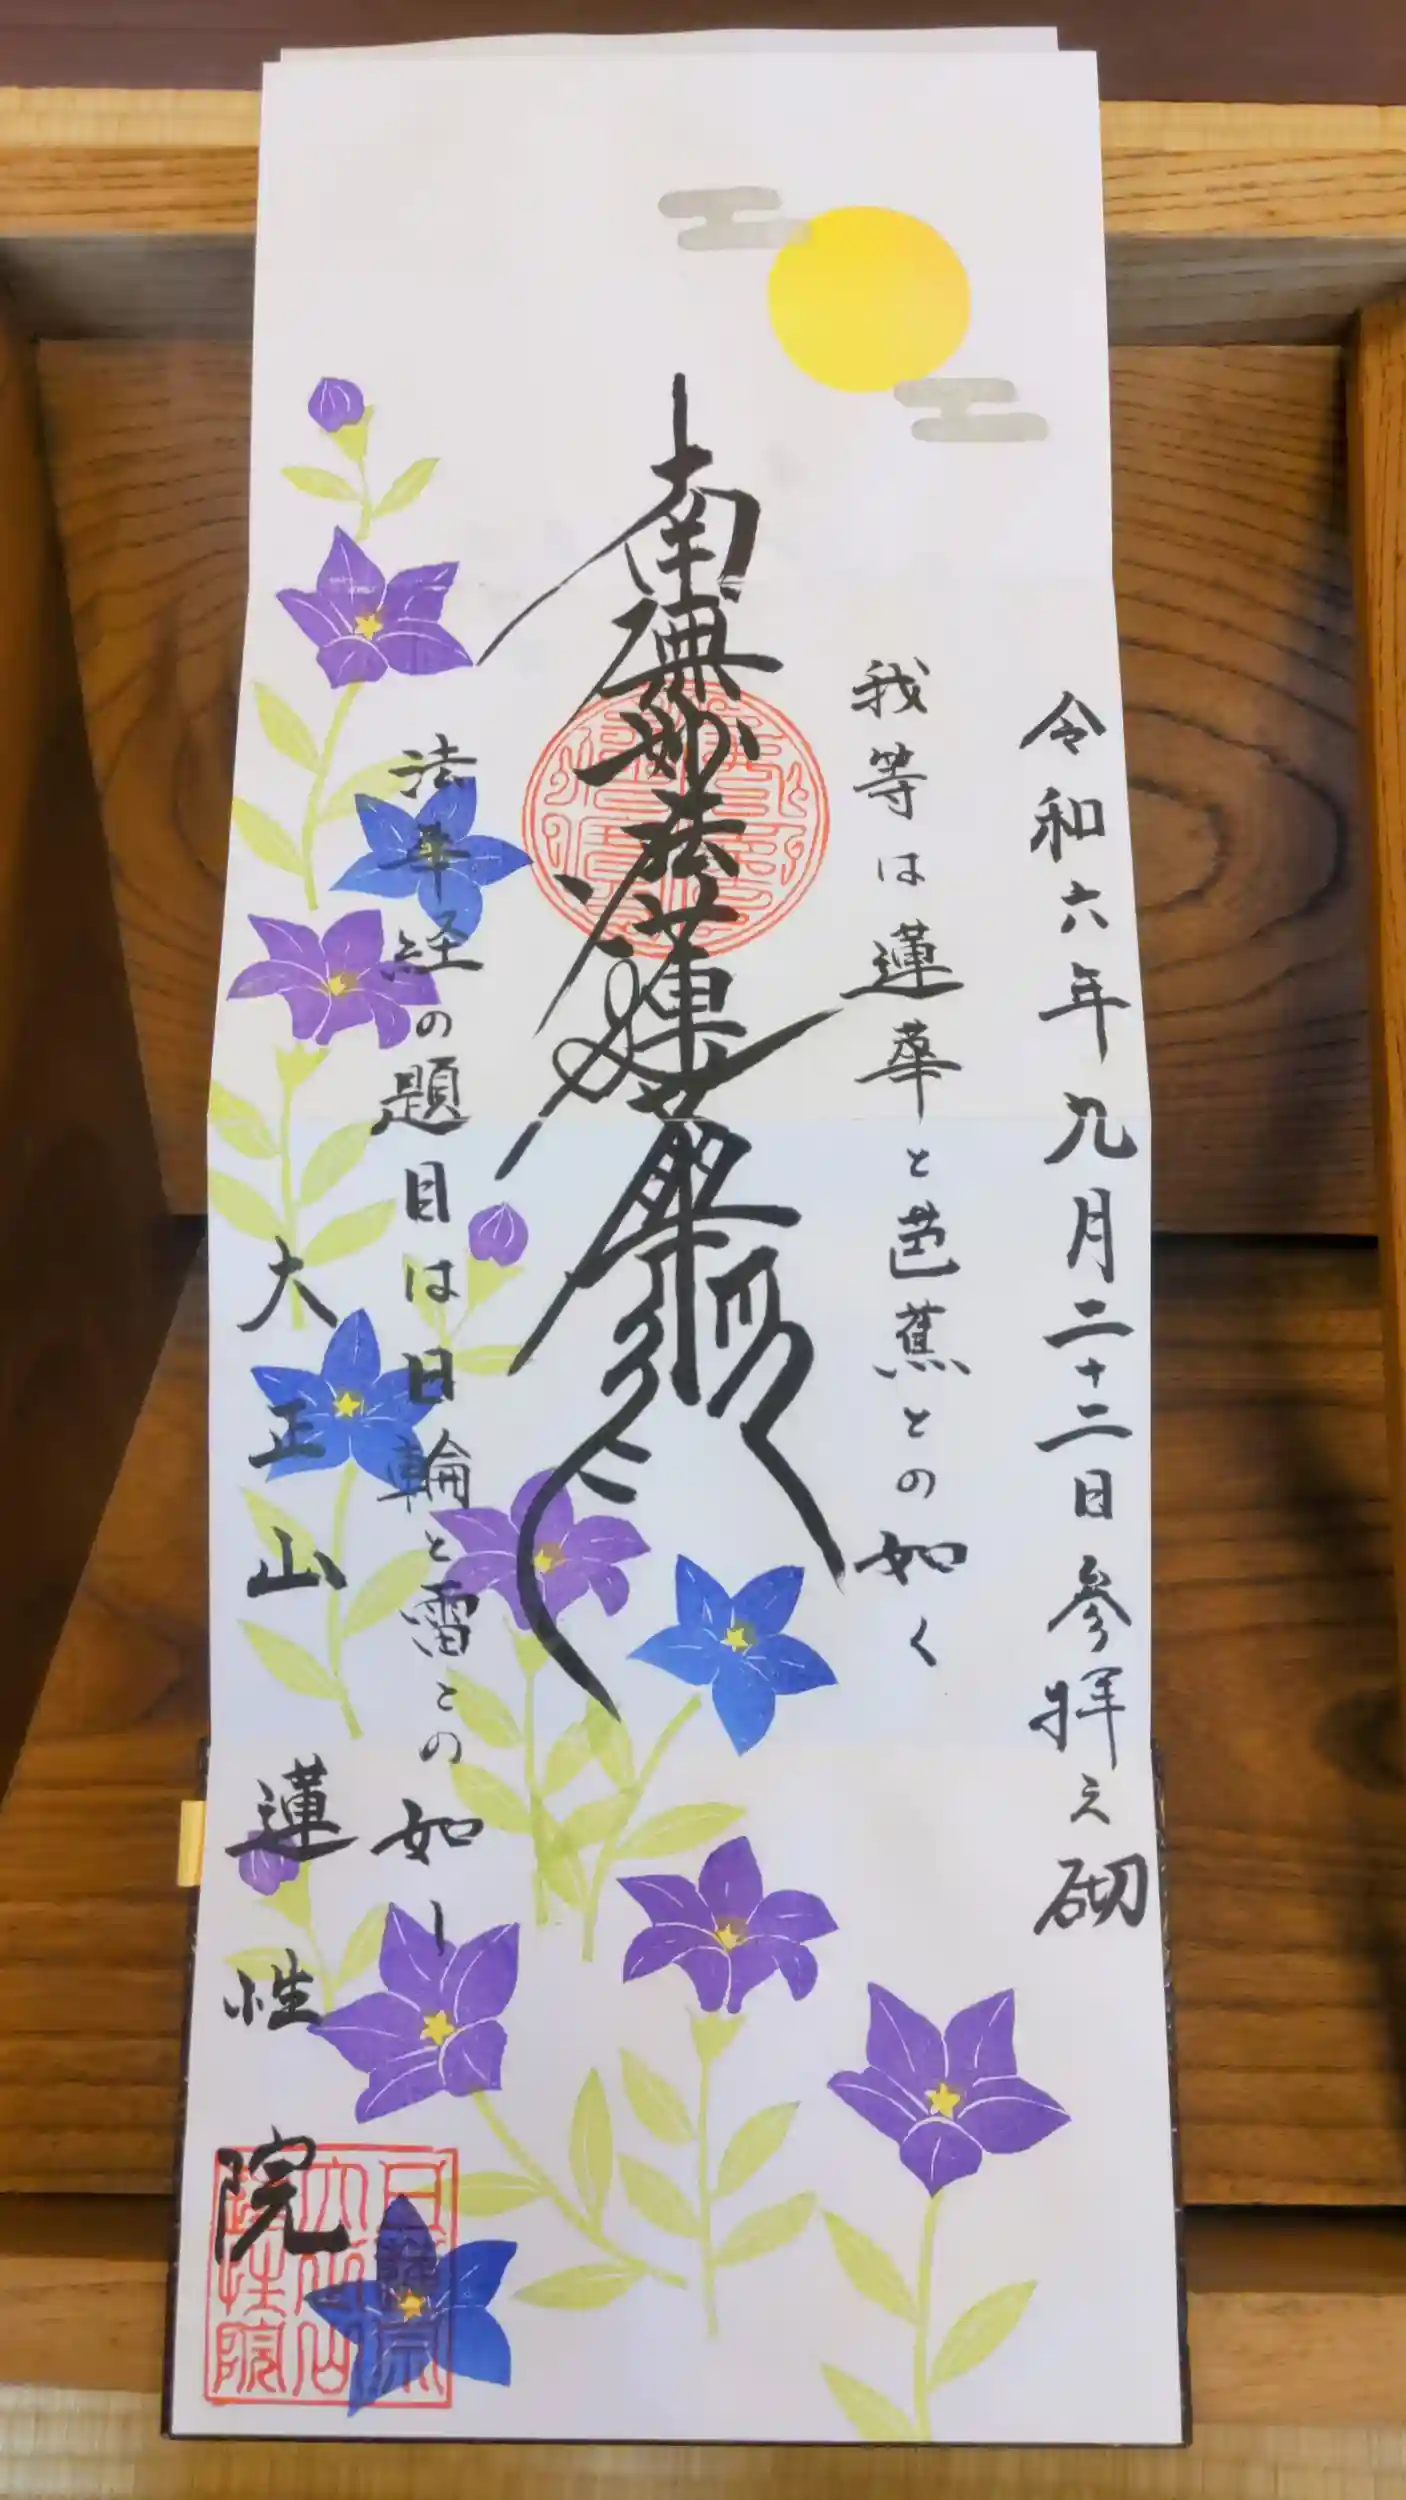 令和六年九月二十二日参拝之砌
我等は蓮華と芭蕉との如く
南無妙法蓮華経
法華経の題目は日輪と雷との如し
大正山 蓮性院